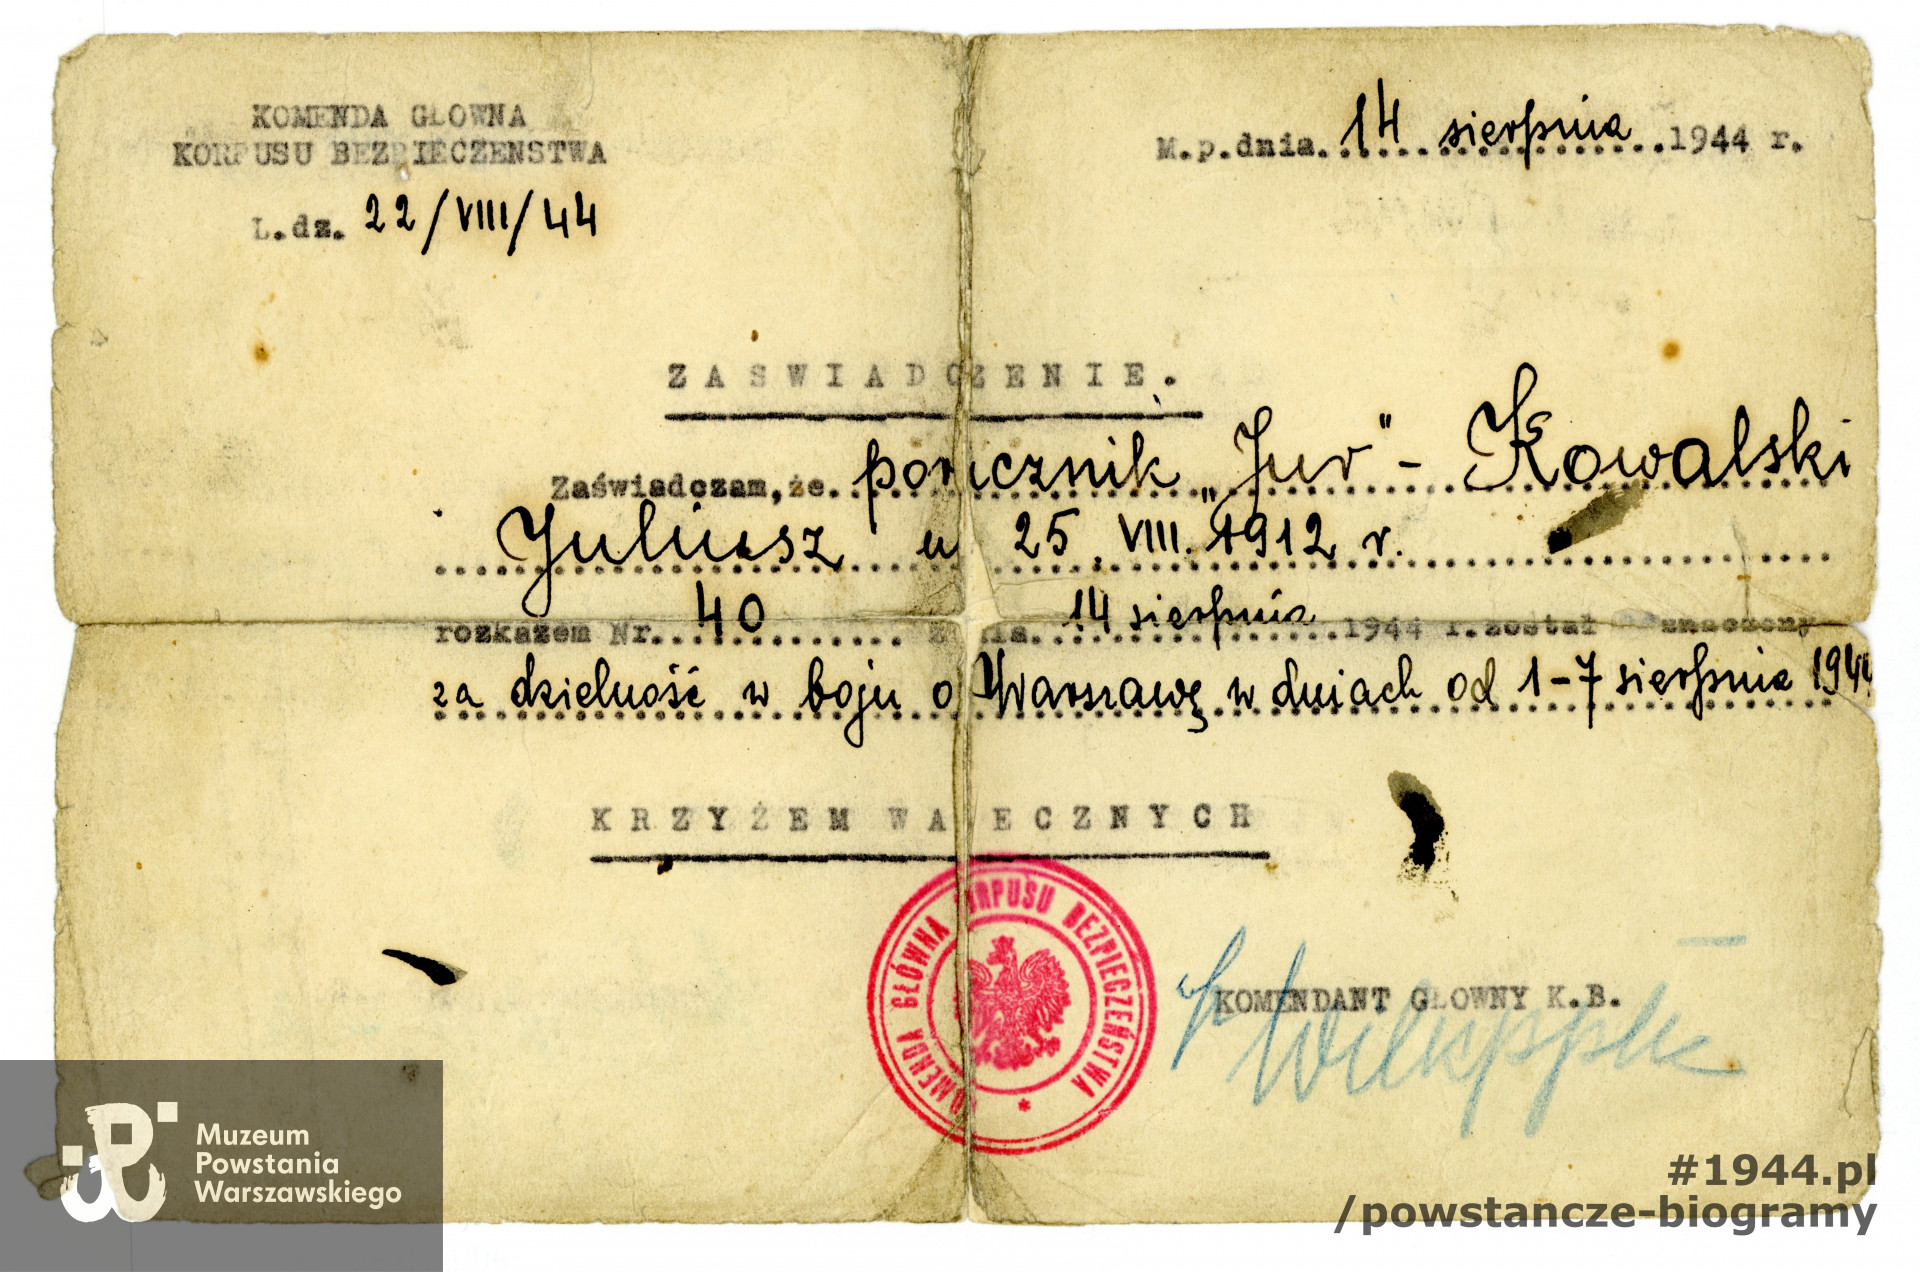 KOMENDA GŁOWNA
KORPUSU BEZPIECZENSTWA
M.p.dnia. 14 sierpnia 1944 r.
L.dz. 22/VIII/44
ZASWIADCZENIE.
Zaświadczam,że porucznik „Jur” - Kowalski
Juliusz u 25.VIII.1912 r.
rozkazem Nr. 40 14 sierpnia 1944 r.został odznaczony
za dzielność w boju o Warszawę w dniach od 1-7 sierpnia 1944
KRZYŻEM WALECZNYCH
KOMENDA GŁÓWNA KORPUSU BEZPIECZEŃSTWA *
KOMENDANT GŁOWNY K.B.
Muzeum
Powstania
Warszawskiego
#1944.pl
/powstancze-biogramy